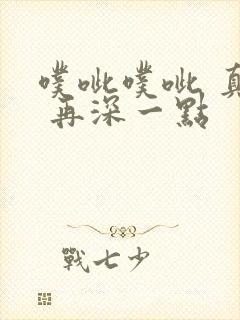 噗呲噗呲 真
再深一點
戰七少